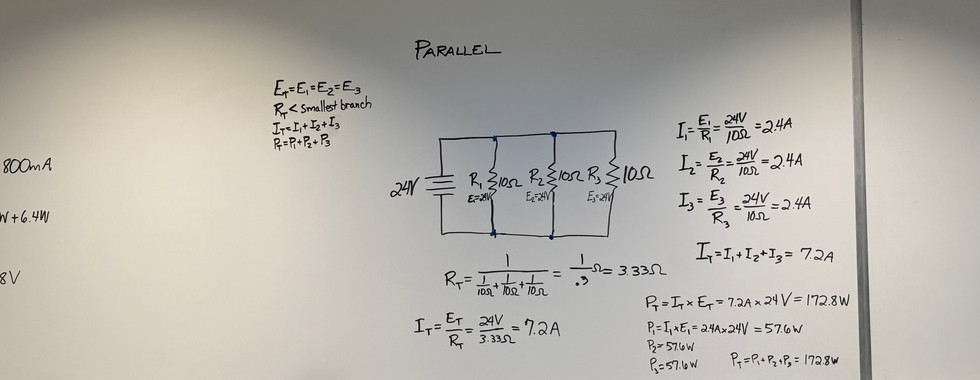 PARALLEL
E_T=E₁=E₂=E₃
R_T < smallest branch
I_T=I₁+I₂+I₃
P_T=P₁+P₂+P₃
800mA
W+6.4W
8V
24V
R₁ 10Ω R₂ 10Ω R₃ 10Ω
E₁=24V E₂=24V E₃=24V
R_T= 1/(1/10Ω + 1/10Ω + 1/10Ω) = 1/.3 Ω = 3.33Ω
I_T= E_T/R_T = 24V/3.33Ω = 7.2A
I₁= E₁/R₁ = 24V/10Ω = 2.4A
I₂= E₂/R₂ = 24V/10Ω = 2.4A
I₃= E₃/R₃ = 24V/10Ω = 2.4A
I_T=I₁+I₂+I₃= 7.2A
P_T=I_T x E_T= 7.2A x 24V= 172.8W
P₁=I₁xE₁= 2.4Ax24V = 57.6W
P₂= 57.6W
P₃=57.6W P_T=P₁+P₂+P₃= 172.8W